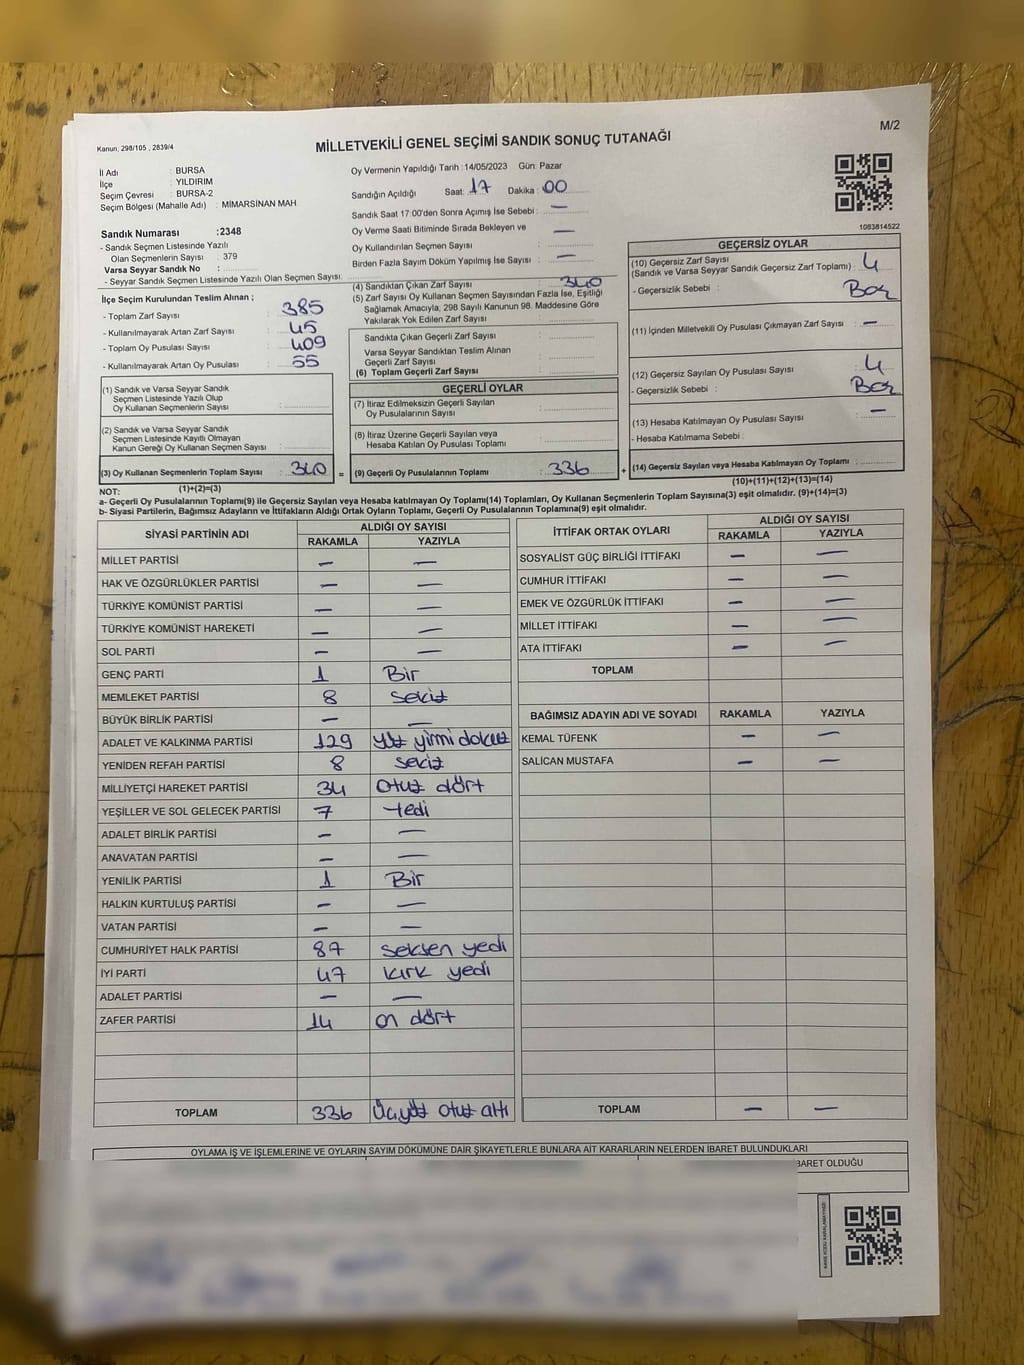 Kanun; 298/105 , 2839/4
M/2
MİLLETVEKİLİ GENEL SEÇİMİ SANDIK SONUÇ TUTANAĞI
İl Adı : BURSA
İlçe : YILDIRIM
Seçim Çevresi : BURSA-2
Seçim Bölgesi (Mahalle Adı) : MİMARSİNAN MAH
Sandık Numarası :2348
- Sandık Seçmen Listesinde Yazılı
Olan Seçmenlerin Sayısı : 379
Varsa Seyyar Sandık No :
- Seyyar Sandık Seçmen Listesinde Yazılı Olan Seçmen Sayısı:
İlçe Seçim Kurulundan Teslim Alınan ;
- Toplam Zarf Sayısı : 385
- Kullanılmayarak Artan Zarf Sayısı : 45
- Toplam Oy Pusulası Sayısı : 409
- Kullanılmayarak Artan Oy Pusulası : 55
(1) Sandık ve Varsa Seyyar Sandık
Seçmen Listesinde Yazılı Olup
Oy Kullanan Seçmenlerin Sayısı :
(2) Sandık ve Varsa Seyyar Sandık
Seçmen Listesinde Kayıtlı Olmayan
Kanun Gereği Oy Kullanan Seçmen Sayısı :
(3) Oy Kullanan Seçmenlerin Toplam Sayısı : 340 =
(1)+(2)=(3)
Oy Vermenin Yapıldığı Tarih : 14/05/2023 Gün: Pazar
Sandığın Açıldığı Saat: 17 Dakika : 00
Sandık Saat 17:00'den Sonra Açımış İse Sebebi : —
Oy Verme Saati Bitiminde Sırada Bekleyen ve
Oy Kullandırılan Seçmen Sayısı : —
Birden Fazla Sayım Döküm Yapılmış İse Sayısı : —
(4) Sandıktan Çıkan Zarf Sayısı : 340
(5) Zarf Sayısı Oy Kullanan Seçmen Sayısından Fazla İse, Eşitliği
Sağlamak Amacıyla, 298 Sayılı Kanunun 98. Maddesine Göre
Yakılarak Yok Edilen Zarf Sayısı :
Sandıkta Çıkan Geçerli Zarf Sayısı :
Varsa Seyyar Sandıktan Teslim Alınan
Geçerli Zarf Sayısı :
(6) Toplam Geçerli Zarf Sayısı :
GEÇERLİ OYLAR
(7) İtiraz Edilmeksizin Geçerli Sayılan
Oy Pusulalarının Sayısı :
(8) İtiraz Üzerine Geçerli Sayılan veya
Hesaba Katılan Oy Pusulası Toplamı :
(9) Geçerli Oy Pusulalarının Toplamı : 336 +
1083814522
GEÇERSİZ OYLAR
(10) Geçersiz Zarf Sayısı
(Sandık ve Varsa Seyyar Sandık Geçersiz Zarf Toplamı) : 4
- Geçersizlik Sebebi : Boş
(11) İçinden Milletvekili Oy Pusulası Çıkmayan Zarf Sayısı : —
(12) Geçersiz Sayılan Oy Pusulası Sayısı : 4
- Geçersizlik Sebebi : Boş
(13) Hesaba Katılmayan Oy Pusulası Sayısı : —
- Hesaba Katılmama Sebebi :
(14) Geçersiz Sayılan veya Hesaba Katılmayan Oy Toplamı :
(10)+(11)+(12)+(13)=(14)
NOT:
a- Geçerli Oy Pusulalarının Toplamı(9) ile Geçersiz Sayılan veya Hesaba katılmayan Oy Toplamı(14) Toplamları, Oy Kullanan Seçmenlerin Toplam Sayısına(3) eşit olmalıdır. (9)+(14)=(3)
b- Siyasi Partilerin, Bağımsız Adayların ve İttifakların Aldığı Ortak Oyların Toplamı, Geçerli Oy Pusulalarının Toplamına(9) eşit olmalıdır.
SİYASİ PARTİNİN ADI ALDIĞI OY SAYISI
RAKAMLA YAZIYLA
MİLLET PARTİSİ — —
HAK VE ÖZGÜRLÜKLER PARTİSİ — —
TÜRKİYE KOMÜNİST PARTİSİ — —
TÜRKİYE KOMÜNİST HAREKETİ — —
SOL PARTİ — —
GENÇ PARTİ 1 Bir
MEMLEKET PARTİSİ 8 sekiz
BÜYÜK BİRLİK PARTİSİ — —
ADALET VE KALKINMA PARTİSİ 129 yüz yirmi dokuz
YENİDEN REFAH PARTİSİ 8 sekiz
MİLLİYETÇİ HAREKET PARTİSİ 34 otuz dört
YEŞİLLER VE SOL GELECEK PARTİSİ 7 yedi
ADALET BİRLİK PARTİSİ — —
ANAVATAN PARTİSİ — —
YENİLİK PARTİSİ 1 Bir
HALKIN KURTULUŞ PARTİSİ — —
VATAN PARTİSİ — —
CUMHURİYET HALK PARTİSİ 87 seksen yedi
İYİ PARTİ 47 kırk yedi
ADALET PARTİSİ — —
ZAFER PARTİSİ 14 on dört
TOPLAM 336 Üçyüz otuz altı
İTTİFAK ORTAK OYLARI ALDIĞI OY SAYISI
RAKAMLA YAZIYLA
SOSYALİST GÜÇ BİRLİĞİ İTTİFAKI — —
CUMHUR İTTİFAKI — —
EMEK VE ÖZGÜRLÜK İTTİFAKI — —
MİLLET İTTİFAKI — —
ATA İTTİFAKI — —
TOPLAM
BAĞIMSIZ ADAYIN ADI VE SOYADI RAKAMLA YAZIYLA
KEMAL TÜFENK — —
SALİCAN MUSTAFA — —
TOPLAM — —
OYLAMA İŞ VE İŞLEMLERİNE VE OYLARIN SAYIM DÖKÜMÜNE DAİR ŞİKAYETLERLE BUNLARA AİT KARARLARIN NELERDEN İBARET BULUNDUKLARI
BARET OLDUĞU